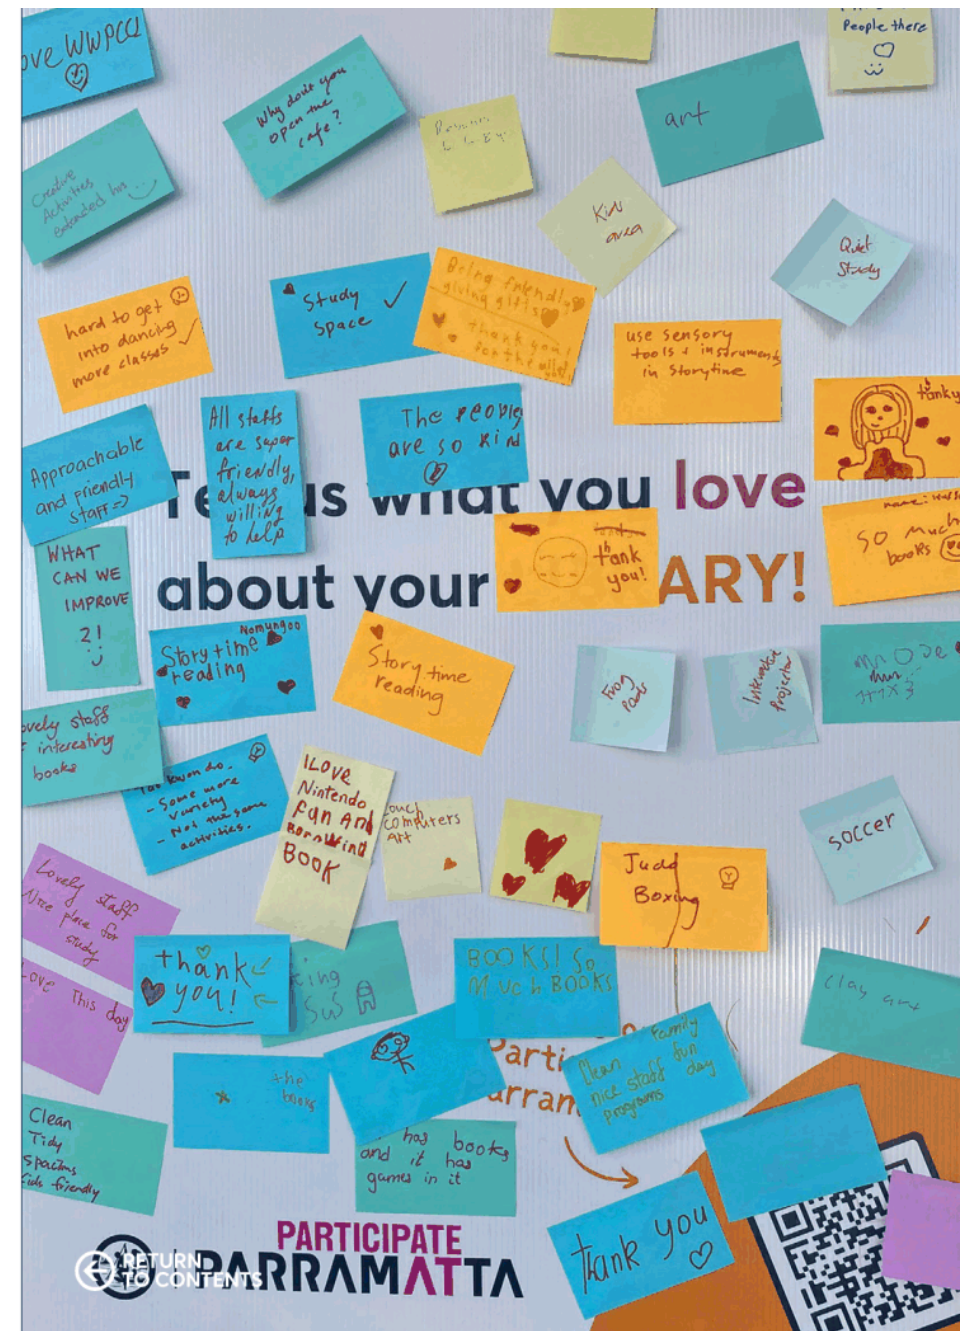 ove WWPCCL
People there
Why don't you
open the
cafe?
art
Creative
Activities
extended hrs
Kids
area
Quiet
Study
hard to get
into dancing
more classes
Study
space
Being friendly
giving gifts
thank you!
for the
use sensory
tools + instruments
in storytime
tanky
Approachable
and friendly
staff =>
All staffs
are super
friendly,
always
willing
to help
The people
are so kind
Te us what you love
about your ARY!
thank
you!
name:
SO much
books
WHAT
CAN WE
IMPROVE
?!
Nomungoo
Story time
reading
Story time
reading
Frog
Pads
Interactive
Projector
ovely staff
interesting
books
- Some more
variety
- Not the same
activities.
I LOVE
Nintendo
fun And
BOOK
ouch
computers
Art
Judo
Boxing
soccer
Lovely staff
Nice place for
study
Love This day
thank
you!
ting
BOOKS! So
Much BOOKS
clay art
the
books
Parti
arram
Clean Family
nice staff fun
programs day
Clean
Tidy
Spacious
Kids friendly
has books
and it has
games in it
thank you
PARTICIPATE
PARRAMATTA
RETURN
TO CONTENTS